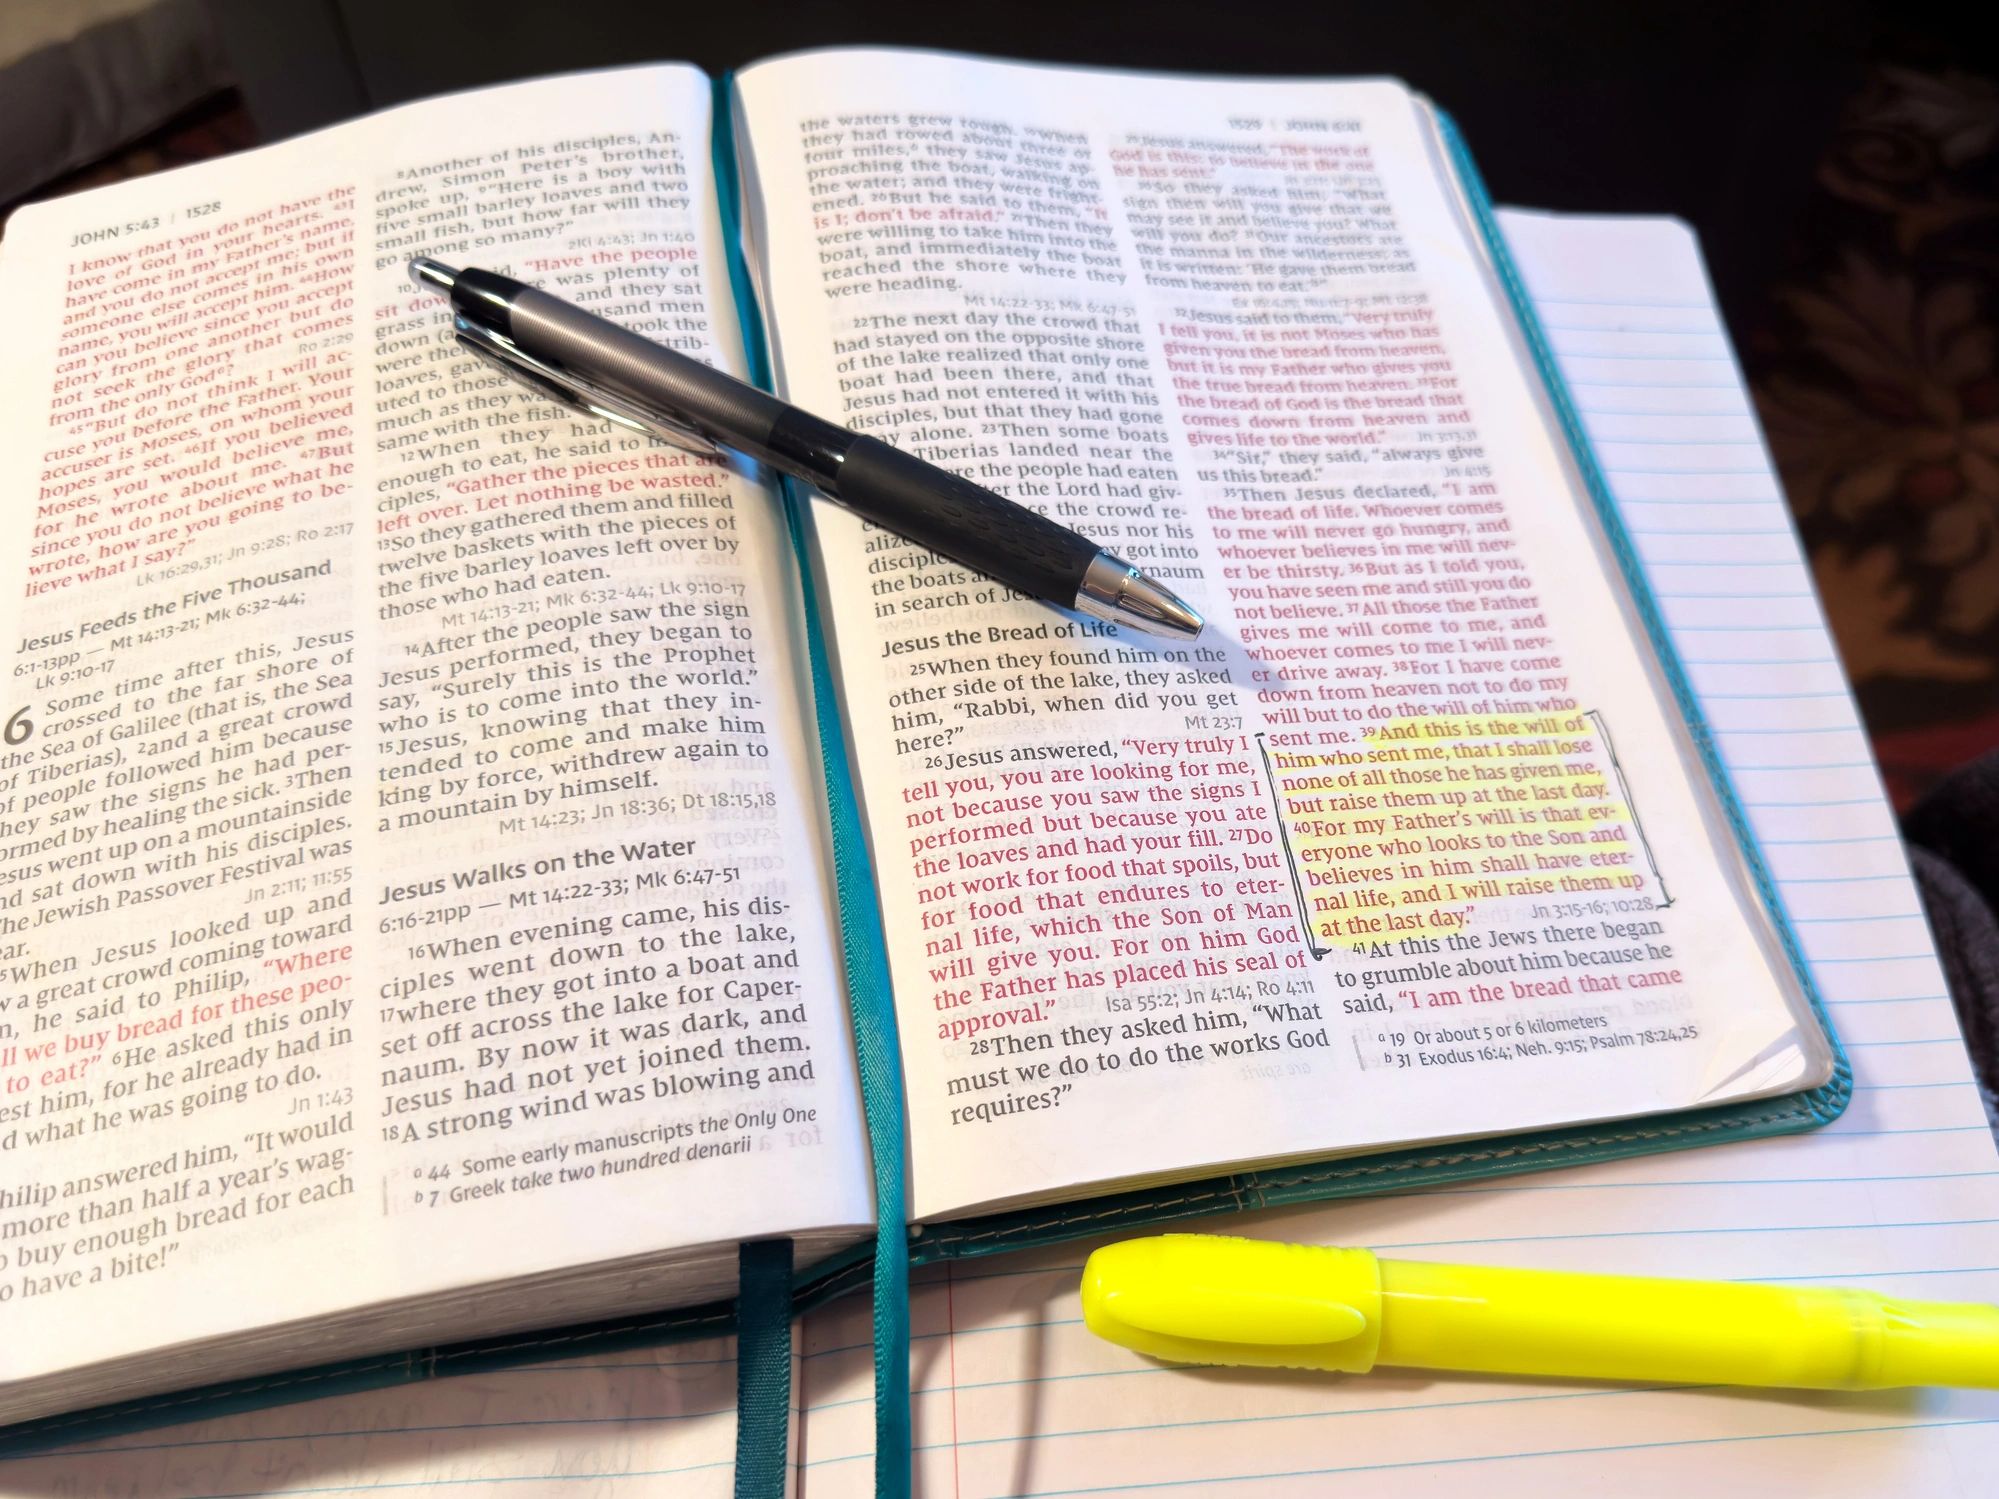 JOHN 5:43 | 1528
I know that you do not have the
love of God in your hearts. 43I
have come in my Father's name,
and you do not accept me; but if
someone else comes in his own
name, you will accept him. 44How
can you believe since you accept
glory from one another but do
not seek the glory that comes
from the only Goda?
Ro 2:29
45"But do not think I will ac-
cuse you before the Father. Your
accuser is Moses, on whom your
hopes are set. 46If you believed
Moses, you would believe me,
for he wrote about me. 47But
since you do not believe what he
wrote, how are you going to be-
lieve what I say?"
Lk 16:29,31; Jn 9:28; Ro 2:17
Jesus Feeds the Five Thousand
6:1-13pp — Mt 14:13-21; Mk 6:32-44;
Lk 9:10-17
6 Some time after this, Jesus
crossed to the far shore of
the Sea of Galilee (that is, the Sea
of Tiberias), 2and a great crowd
of people followed him because
they saw the signs he had per-
ormed by healing the sick. 3Then
esus went up on a mountainside
nd sat down with his disciples.
he Jewish Passover Festival was
ear.
Jn 2:11; 11:55
5When Jesus looked up and
w a great crowd coming toward
m, he said to Philip, "Where
ll we buy bread for these peo-
to eat?" 6He asked this only
est him, for he already had in
d what he was going to do.
Jn 1:43
hilip answered him, "It would
more than half a year's wag-
o buy enough bread for each
o have a bite!"
8Another of his disciples, An-
drew, Simon Peter's brother,
spoke up, 9"Here is a boy with
five small barley loaves and two
small fish, but how far will they
go among so many?"
2Ki 4:43; Jn 1:40
10J id, "Have the people
sit dow re was plenty of
grass in and they sat
down (a usand men
were ther took the
loaves, gav strib-
uted to those
much as they wa
same with the fish.
12When they had
enough to eat, he said to
ciples, "Gather the pieces that are
left over. Let nothing be wasted."
13So they gathered them and filled
twelve baskets with the pieces of
the five barley loaves left over by
those who had eaten.
Mt 14:13-21; Mk 6:32-44; Lk 9:10-17
14After the people saw the sign
Jesus performed, they began to
say, "Surely this is the Prophet
who is to come into the world."
15Jesus, knowing that they in-
tended to come and make him
king by force, withdrew again to
a mountain by himself.
Mt 14:23; Jn 18:36; Dt 18:15,18
Jesus Walks on the Water
6:16-21pp — Mt 14:22-33; Mk 6:47-51
16When evening came, his dis-
ciples went down to the lake,
17where they got into a boat and
set off across the lake for Caper-
naum. By now it was dark, and
Jesus had not yet joined them.
18A strong wind was blowing and
a 44 Some early manuscripts the Only One
b 7 Greek take two hundred denarii
1529 | JOHN 6:41
the waters grew rough. 19When
they had rowed about three or
four miles,a they saw Jesus ap-
proaching the boat, walking on
the water; and they were fright-
ened. 20But he said to them, "It
is I; don't be afraid." 21Then they
were willing to take him into the
boat, and immediately the boat
reached the shore where they
were heading.
Mt 14:22-33; Mk 6:47-51
22The next day the crowd that
had stayed on the opposite shore
of the lake realized that only one
boat had been there, and that
Jesus had not entered it with his
disciples, but that they had gone
ay alone. 23Then some boats
Tiberias landed near the
re the people had eaten
ter the Lord had giv-
ce the crowd re-
alize Jesus nor his
disciple y got into
the boats a rnaum
in search of Jes
Jesus the Bread of Life
25When they found him on the
other side of the lake, they asked
him, "Rabbi, when did you get
here?"
Mt 23:7
26Jesus answered, "Very truly I
tell you, you are looking for me,
not because you saw the signs I
performed but because you ate
the loaves and had your fill. 27Do
not work for food that spoils, but
for food that endures to eter-
nal life, which the Son of Man
will give you. For on him God
the Father has placed his seal of
approval."
Isa 55:2; Jn 4:14; Ro 4:11
28Then they asked him, "What
must we do to do the works God
requires?"
29Jesus answered, "The work of
God is this: to believe in the one
he has sent."
30So they asked him, "What
sign then will you give that we
may see it and believe you? What
will you do? 31Our ancestors ate
the manna in the wilderness; as
it is written: 'He gave them bread
from heaven to eat.'b"
32Jesus said to them, "Very truly
I tell you, it is not Moses who has
given you the bread from heaven,
but it is my Father who gives you
the true bread from heaven. 33For
the bread of God is the bread that
comes down from heaven and
gives life to the world."
Jn 3:13,31
34"Sir," they said, "always give
us this bread."
Jn 4:15
35Then Jesus declared, "I am
the bread of life. Whoever comes
to me will never go hungry, and
whoever believes in me will nev-
er be thirsty. 36But as I told you,
you have seen me and still you do
not believe. 37All those the Father
gives me will come to me, and
whoever comes to me I will nev-
er drive away. 38For I have come
down from heaven not to do my
will but to do the will of him who
sent me. 39And this is the will of
him who sent me, that I shall lose
none of all those he has given me,
but raise them up at the last day.
40For my Father's will is that ev-
eryone who looks to the Son and
believes in him shall have eter-
nal life, and I will raise them up
at the last day."
Jn 3:15-16; 10:28
41At this the Jews there began
to grumble about him because he
said, "I am the bread that came
a 19 Or about 5 or 6 kilometers
b 31 Exodus 16:4; Neh. 9:15; Psalm 78:24,25